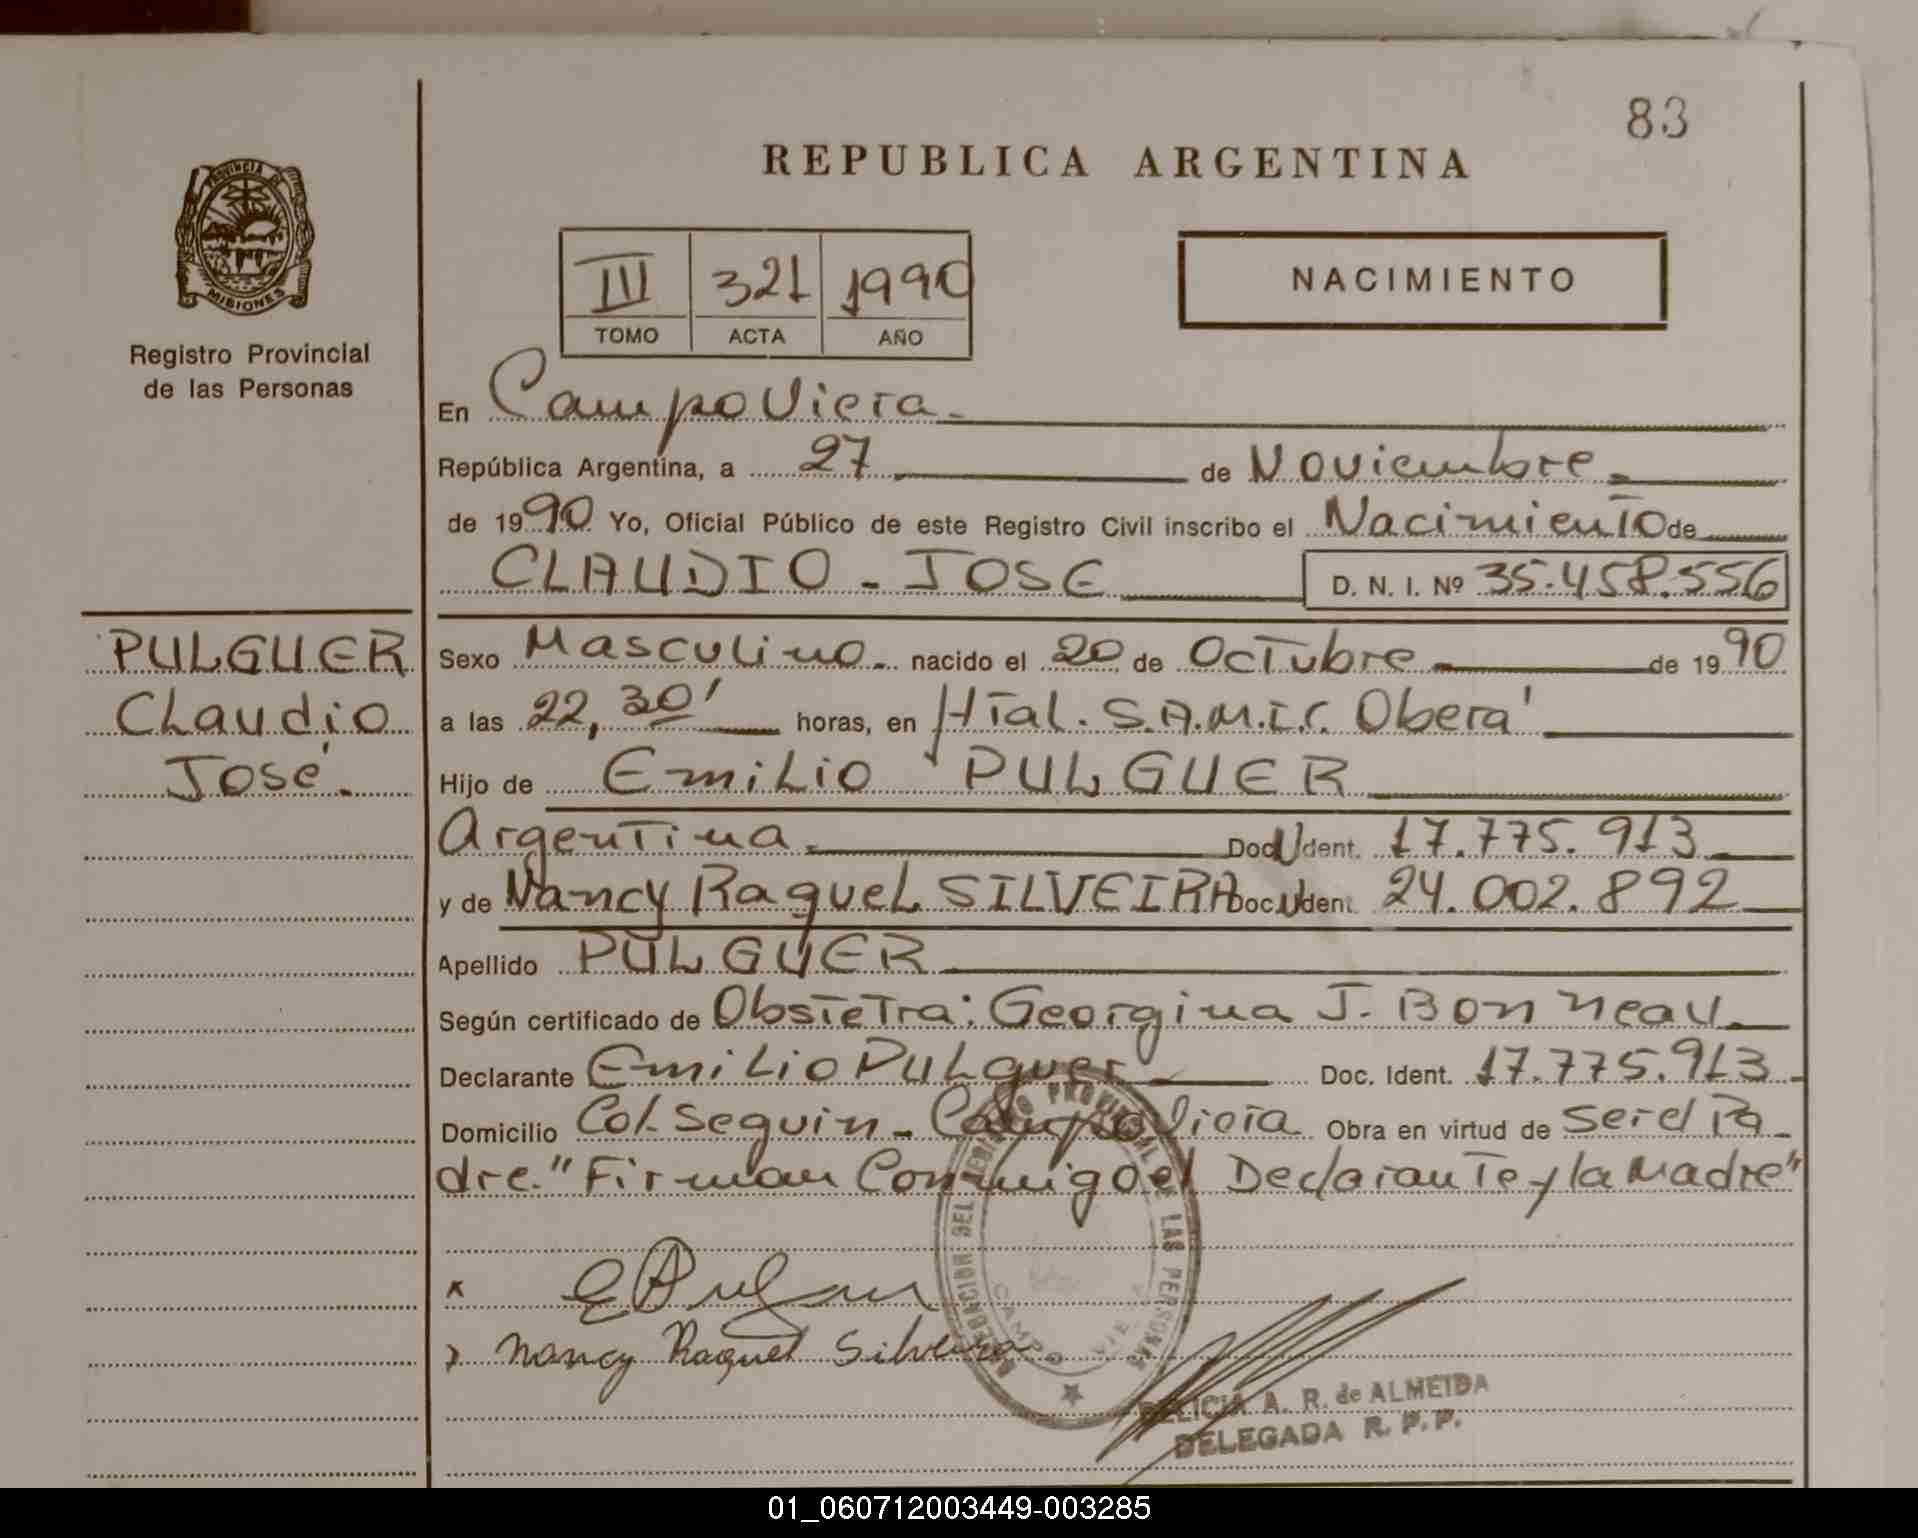 83
REPUBLICA ARGENTINA
PROVINCIA DE
MISIONES
Registro Provincial
de las Personas
III 321 1990
TOMO ACTA AÑO
NACIMIENTO
En Campo Viera.
República Argentina, a 27 de Noviembre
de 1990 Yo, Oficial Público de este Registro Civil inscribo el Nacimiento de
CLAUDIO - JOSE D. N. I. Nº 35.458.556
PULGUER
Claudio
José.
Sexo Masculino nacido el 20 de Octubre de 1990
a las 22,30' horas, en Htal. S.A.M.I.C. Oberá
Hijo de Emilio PULGUER
Argentina. Doc. Ident. 17.775.913
y de Nancy Raquel SILVEIRA Doc. Ident. 24.002.892
Apellido PULGUER
Según certificado de Obstetra: Georgina J. Bonneau
Declarante Emilio Pulguer Doc. Ident. 17.775.913
Domicilio Col. Seguin - Campo Viera Obra en virtud de ser el Pa-
dre. "Firman Conmigo el Declarante y la Madre"
x
x Nancy Raquel Silveira
DEL REGISTRO PROVINCIAL DE LAS PERSONAS
CAMPO VIERA
A. R. de ALMEIDA
DELEGADA R. P. P.
01_060712003449-003285